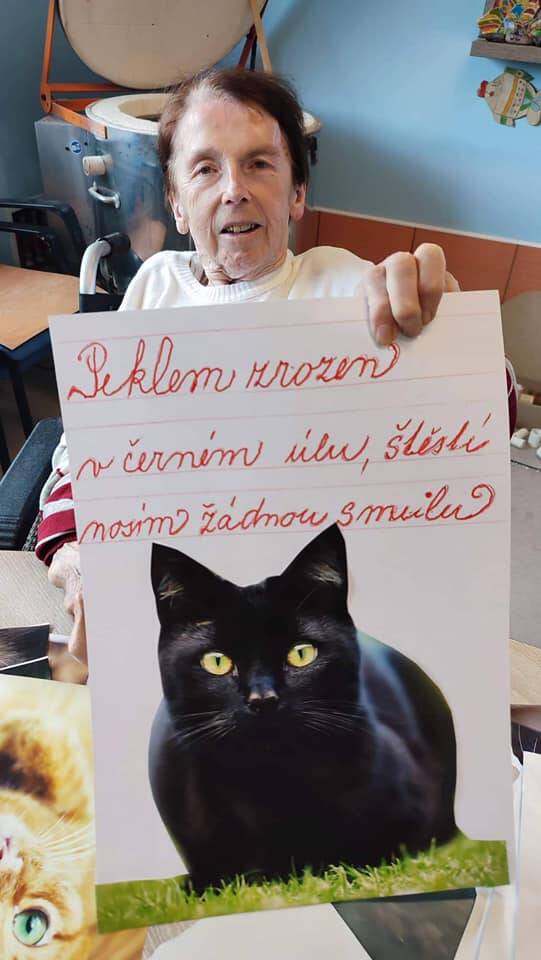 Peklem zrozen
v černém úlu, štěstí
nosím žádnou smůlu